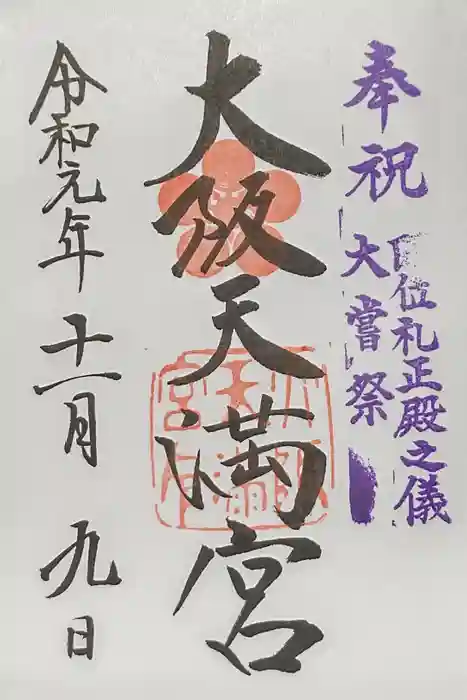 奉祝
即位礼正殿之儀
大嘗祭
大阪天満宮
令和元年十一月九日